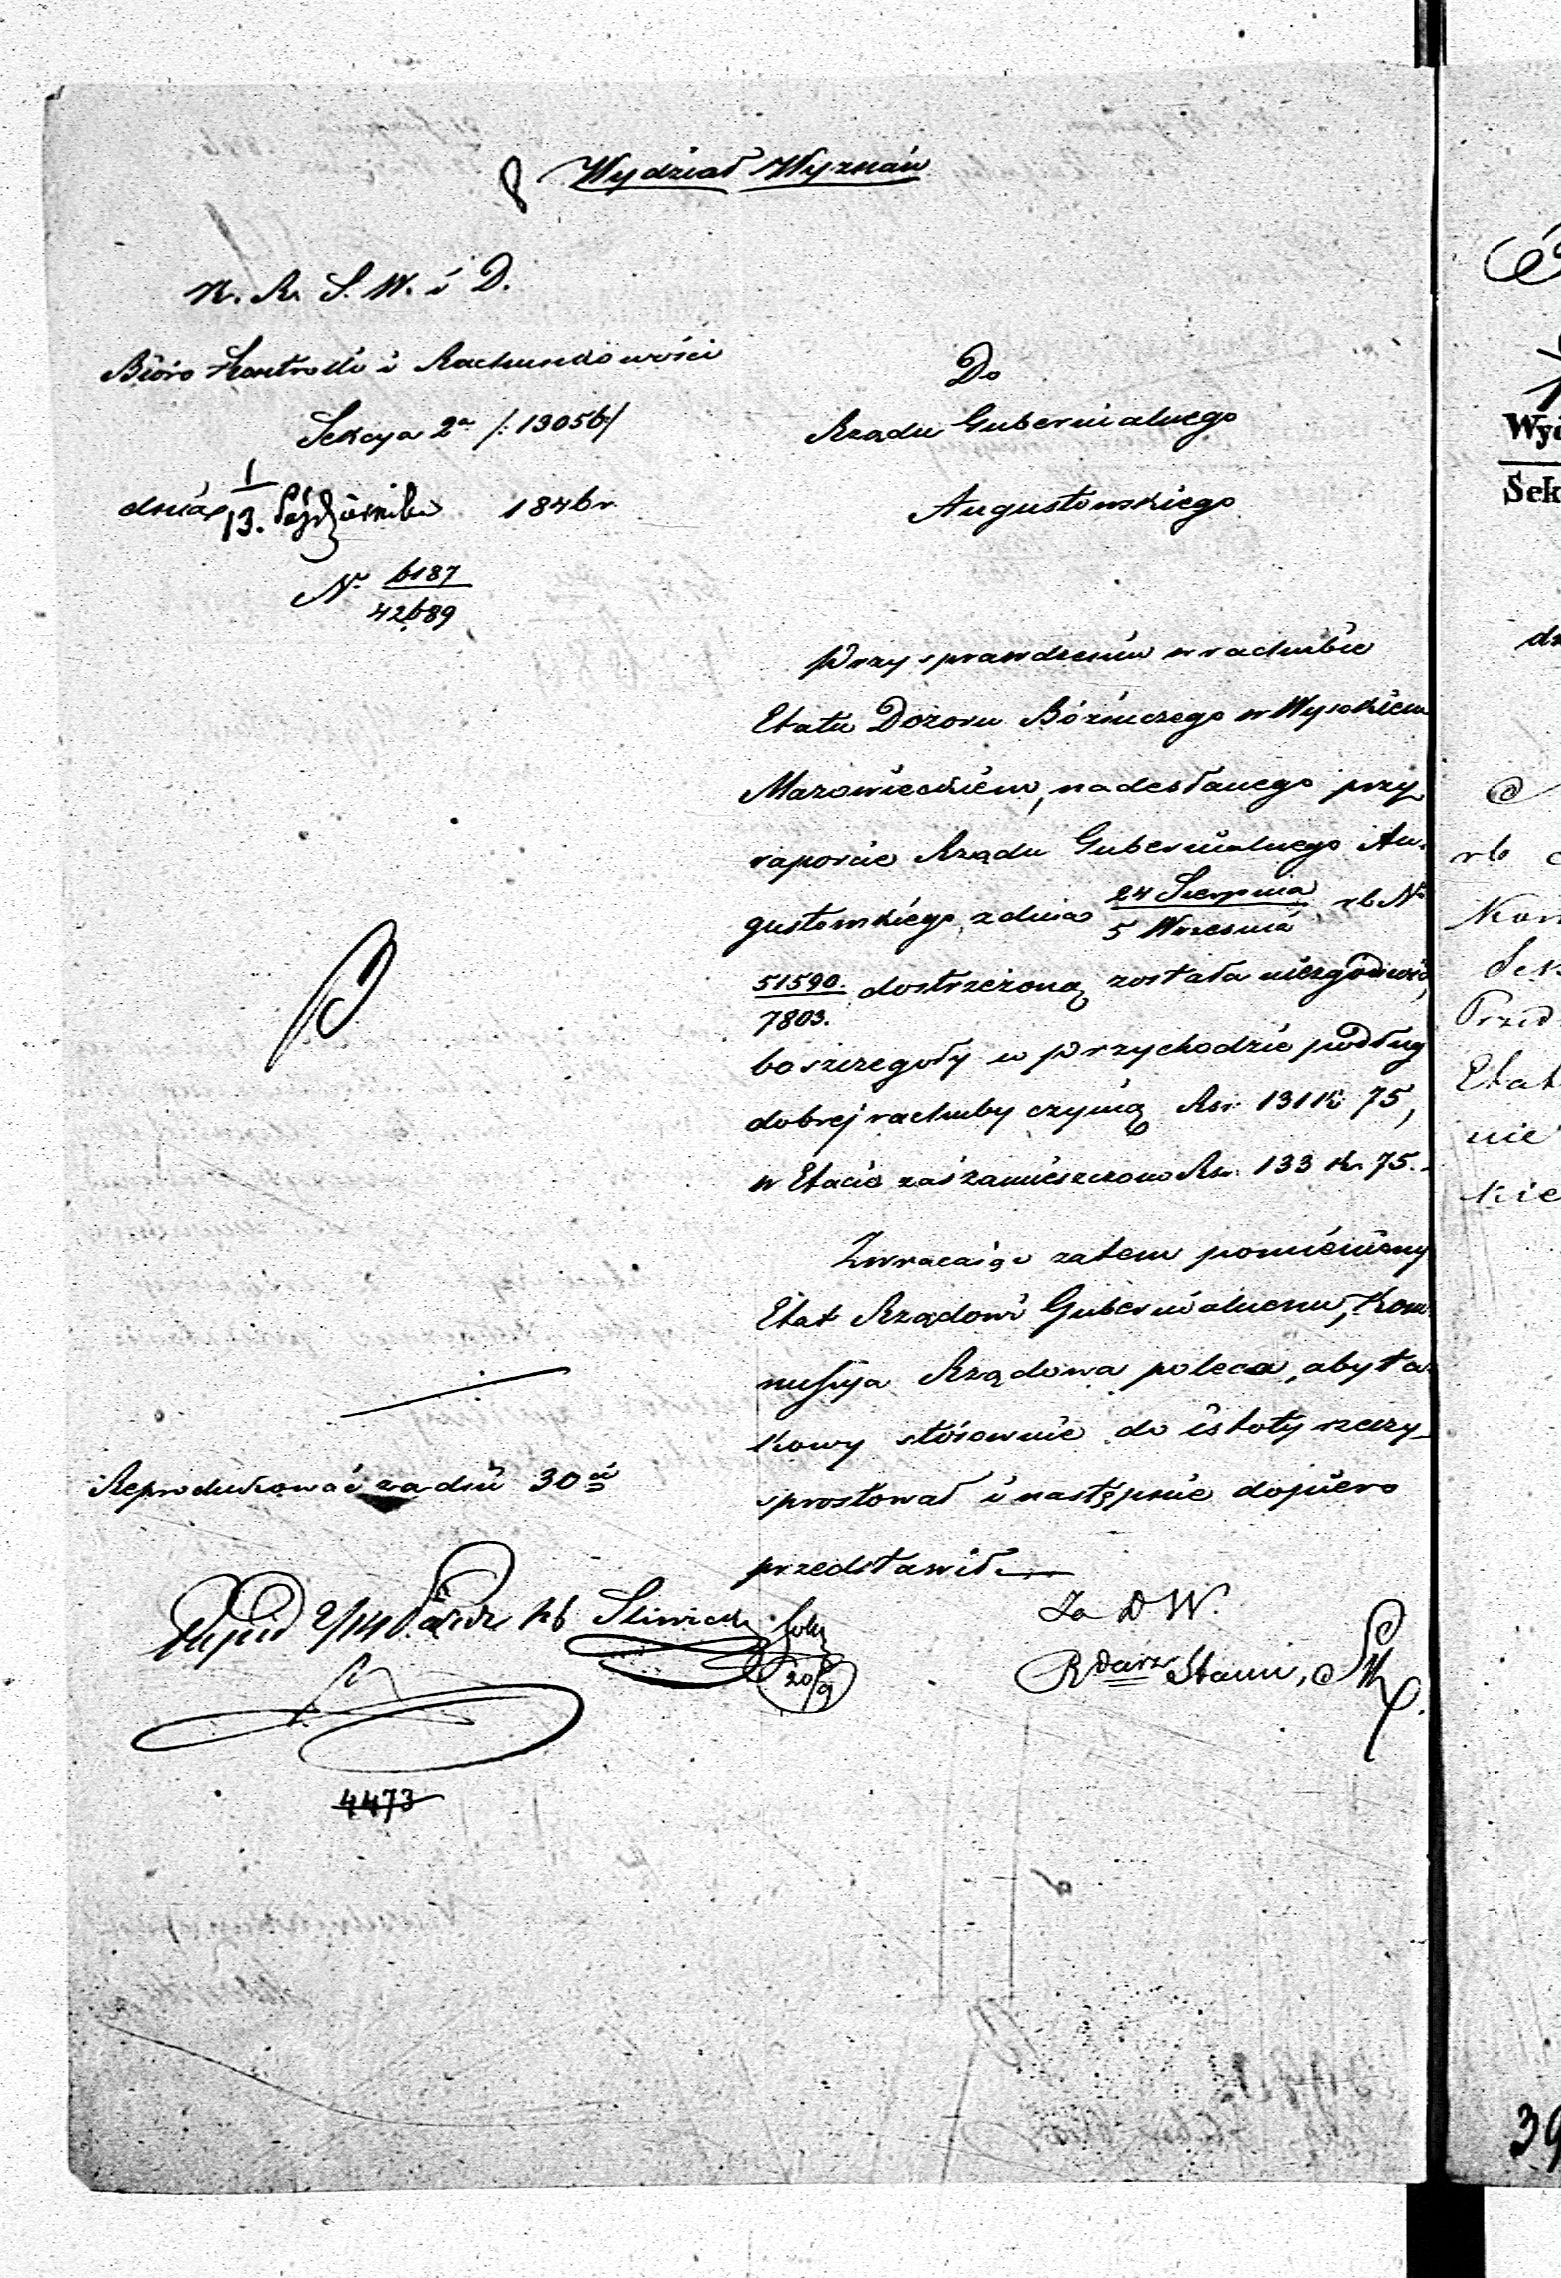 Wydział Wyznań
K. R. S. W. i D.
Bióro Kontrolli i Rachunkowości
Sekcya 2ª /:13056:/
dnia 1/13. Października 1846 r.
Nº 6187/42689
Do
Rządu Gubernialnego
Augustowskiego
Przy sprawdzeniu w rachubie
Etatu Dozoru Bóżniczego w Wysokiem
Mazowieckiem, nadesłanego przy
raporcie Rządu Gubernialnego Au-
gustowskiego z dnia 24 Sierpnia/5 Września rb Nº
51590./7803. dostrzeżoną została niezgodność,
bo szczegóły w przychodzie podług
dobrej rachuby czynią Rsr. 131 K 75,
w Etacie zaś zamieszczono Rsr. 133 K. 75.
Zwracaiąc zatem pomieniony
Etat Rządowi Gubernialnemu, Kom-
missya Rządowa poleca, aby ta-
kowy stósownie do istoty rzeczy
sprostował i następnie dopiero
przedstawił.
Reprodukować za dni 30ci
Za D W.
4473
Wyd
Sek
rb
Kom
Sek
Przed
Etat
nie
kie
39